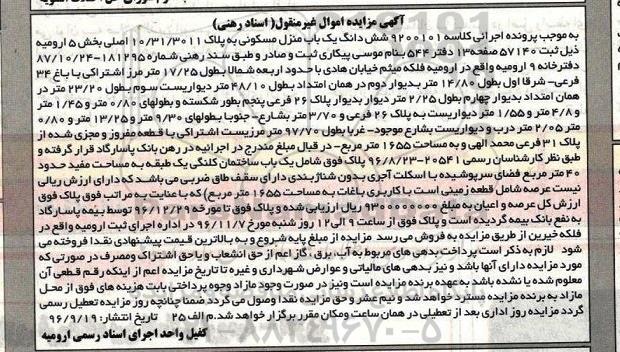 آگهی مزایده اموال غیرمنقول( اسناد رهنی)
به موجب پرونده اجرائی کلاسه ۹۲۰۰۱۰۱ شش دانگ یک باب منزل مسکونی به پلاک ۱۰/۳۱/۳۰۱۱ اصلی بخش ۵ ارومیه
ذیل ثبت ۵۷۱۴۰ صفحه ۱۳ دفتر ۵۴۴ بنام موسی پیکاری ثبت و صادر و طبق سند رهنی شماره ۱۸۱۲۹۵-۸۷/۱۰/۲۴
دفترخانه ۹ ارومیه واقع در ارومیه فلکه میثم خیابان هادی با حدود اربعه شمالا بطول ۱۷/۲۵ متر مرز اشتراکی با باغ ۳۴
فرعی- شرقا اول بطول ۱۴/۸۰ متر بدیوار دوم در همان امتداد بطول ۴۸/۱۰ متر دیواریست سوم بطول ۲۳/۲۰ متر در
همان امتداد بدیوار چهارم بطول ۲/۲۵ متر دیوار بدیوار پلاک ۲۶ فرعی پنجم بطور شکسته و بطولهای ۰/۸۰ متر و ۱/۴۵ متر
و ۴/۸ متر و ۱/۵۵ متر دیواریست به پلاک ۲۶ فرعی و ۳/۷۰ متر بشارع- جنوبا بطولهای ۹/۳۰ متر و ۱۳/۲۵ متر و ۰/۸۰
متر ۲/۰۵ متر درب و دیواریست بشارع موجود- غربا بطول ۹۷/۷۰ متر مرزیست اشتراکی با قطعه مفروز و مجزی شده از
پلاک ۳۱ فرعی محمد الهی و به مساحت ۱۶۵۵ متر مربع- در قبال مبلغ مندرج در اجرائیه در رهن بانک پاسارگاد قرار گرفته و
طبق نظر کارشناسان رسمی ۲۰۵۴۱-۹۶/۸/۲۳ پلاک فوق شامل یک باب ساختمان کلنگی یک طبقه به مساحت مفید حدود
۴۰ متر مربع فضای سرپوشیده با اسکلت آجری بدون شناژ بندی دارای سقف طاق ضربی می باشد که دارای ارزش ریالی
نیست عرصه شامل قطعه زمینی است با کاربری باغات به مساحت ۱۶۵۵ متر مربع) که با عنایت به مراتب فوق پلاک فوق
ارزش کل عرصه و اعیان به مبلغ ۹۳۰۰۰۰۰۰۰۰ ریال ارزیابی شده و پلاک فوق تا مورخه ۹۶/۱۲/۲۹ توسط بیمه پاسارگاد
به نفع بانک بیمه گردیده است و پلاک فوق از ساعت ۹ الی ۱۲ روز شنبه مورخ ۹۶/۱۱/۷ در اداره اجرای ثبت ارومیه واقع در
فلکه خیرین از طریق مزایده به فروش می رسد مزایده از مبلغ پایه شروع و به بالاترین قیمت پیشنهادی نقدا فروخته می
شود لازم به ذکر است پرداخت بدهی های مربوط به آب، برق، گاز اعم از حق انشعاب و یا حق اشتراک ومصرف در صورتی که
مورد مزایده دارای آنها باشد و نیز بدهی های مالیاتی و عوارض شهرداری و غیره تا تاریخ مزایده اعم از اینکه رقم قطعی آن
معلوم شده یا نشده باشد به عهده برنده مزایده است ونیز در صورت وجود مازاد وجوه پرداختی بابت هزینه های فوق از محل
مازاد به برنده مزایده مسترد خواهد شد و نیم عشر و حق مزایده نقدا وصول می گردد ضمنا چنانچه روز مزایده تعطیل رسمی
گردد مزایده روز اداری بعد از تعطیلی در همان ساعت ومکان مقرر برگزار خواهد شد.م الف ۲۵ تاریخ انتشار: ۹۶/۹/۱۹
کفیل واحد اجرای اسناد رسمی ارومیه